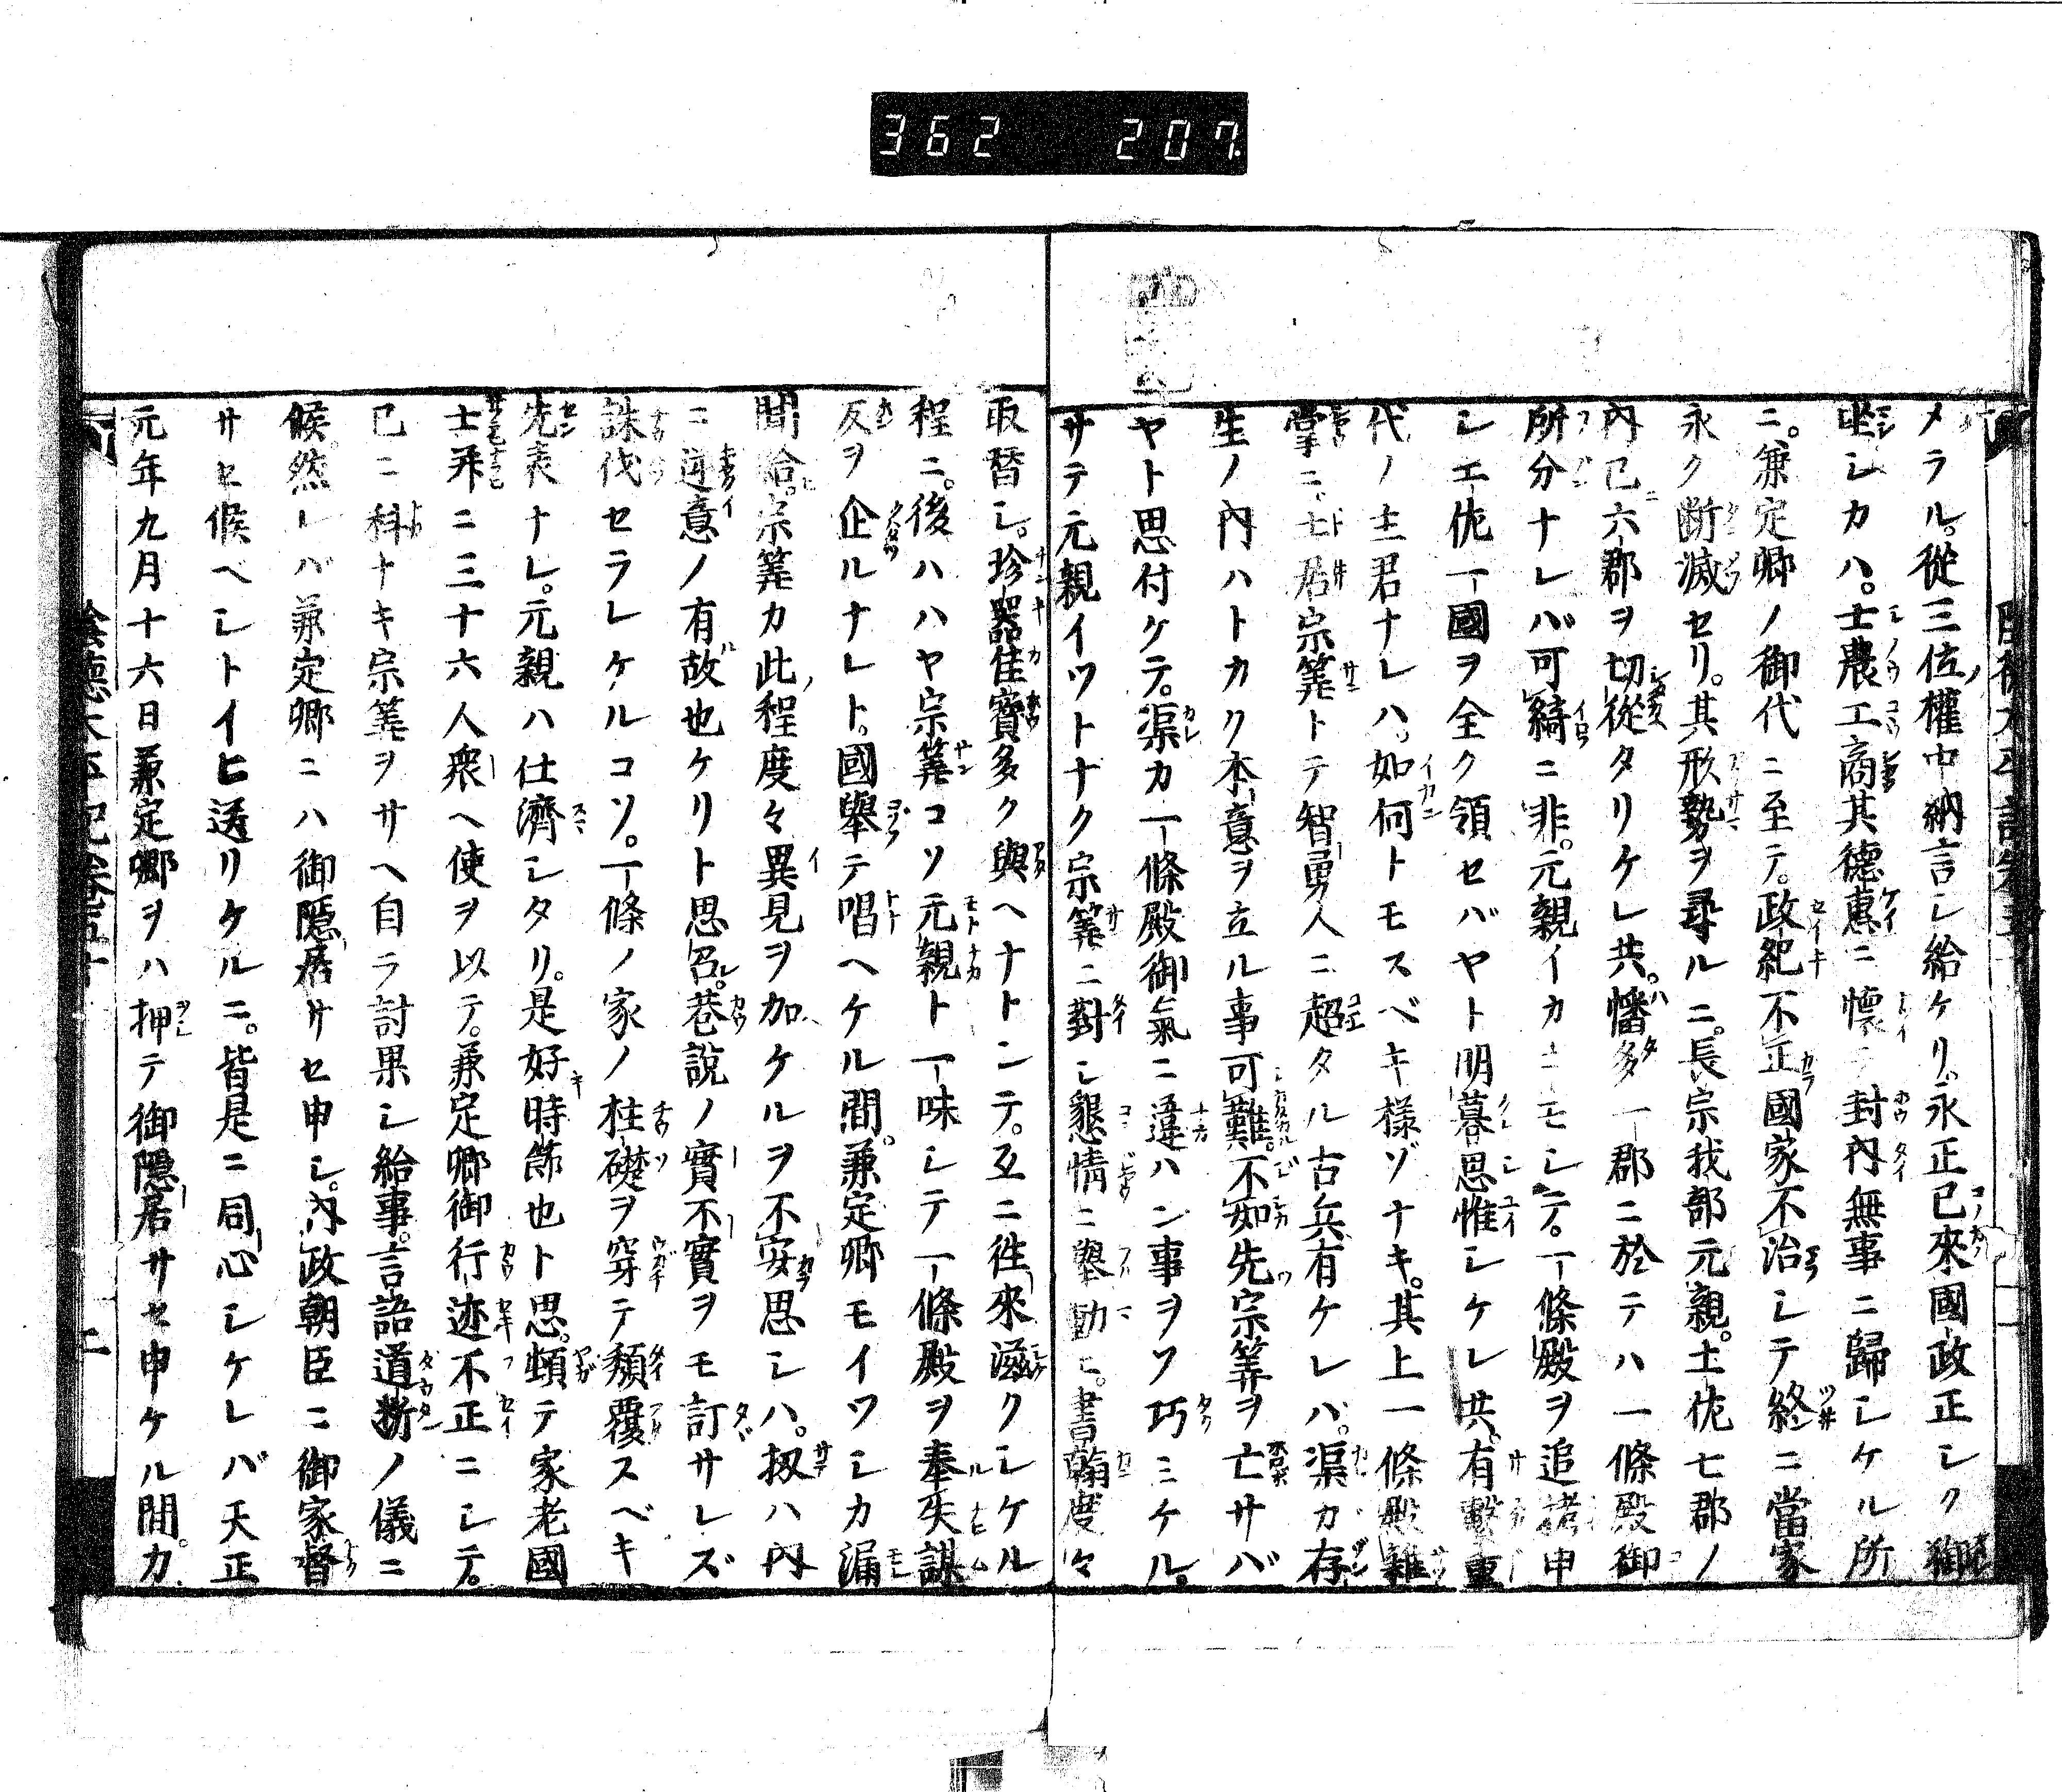 362 207
メラル。從三位權中納言シ給ケリ。永正已來國政正シク御
坐シカハ。士農工商其德惠ニ懷テ封內無事ニ歸シケル所
ニ。兼定卿ノ御代ニ至テ。政紀不正國家不治シテ終ニ當家
永ク断滅セリ。其形勢ヲ尋ルニ。長宗我部元親。土佐七郡ノ
內已六郡ヲ切從タリケレ共。幡多一郡ニ於テハ一條殿御
所分ナレバ可綺ニ非。元親イカニモシテ。一條殿ヲ追 申
シ土佐一國ヲ全ク領セバヤト明暮思惟シケレ共。有繫重
代ノ主君ナレハ。如何トモスベキ様ゾナキ。其上一條殿雜
掌ニ土居宗筭トテ智勇人ニ超タル古兵有ケレバ。渠カ存
生ノ內ハトカク本意ヲ立ル事可難。不如先宗筭ヲ亡サバ
ヤト思付ケテ。渠カ一條殿御氣ニ違ハン事ヲソ巧ミケル。
サテ元親イツトナク宗筭ニ對シ懇情ニ擧動ヒ。書翰度々
取替シ。珍器佳寶多ク與ヘナトシテ。互ニ往來滋クシケル
程ニ。後ハハヤ宗筭コソ元親ト一味シテ一條殿ヲ奉失謀
反ヲ企ルナレト。國擧テ唱ヘケル間。兼定卿モイツシカ漏
聞給。宗筭カ此程度々異見ヲ加ケルヲ不安思シハ。扨ハ內
ニ逆意ノ有故也ケリト思召。巷說ノ實不實ヲモ訂サレズ
誅伐セラレケルコソ。一條ノ家ノ柱礎ヲ穿テ頽覆スベキ
先表ナレ。元親ハ仕濟シタリ。是好時節也ト思。頓テ家老國
士幷ニ三十六人衆ヘ使ヲ以テ。兼定卿御行迹不正ニシテ。
已ニ科ナキ宗筭ヲサヘ自ラ討果シ給事。言語道断ノ儀ニ
候。然レバ兼定卿ニハ御隱居サセ申シ。內政朝臣ニ御家督
サセ候ヘシトイヒ送リケルニ。皆是ニ同心シケレバ天正
元年九月十六日兼定卿ヲハ押テ御隱居サセ申ケル間。力